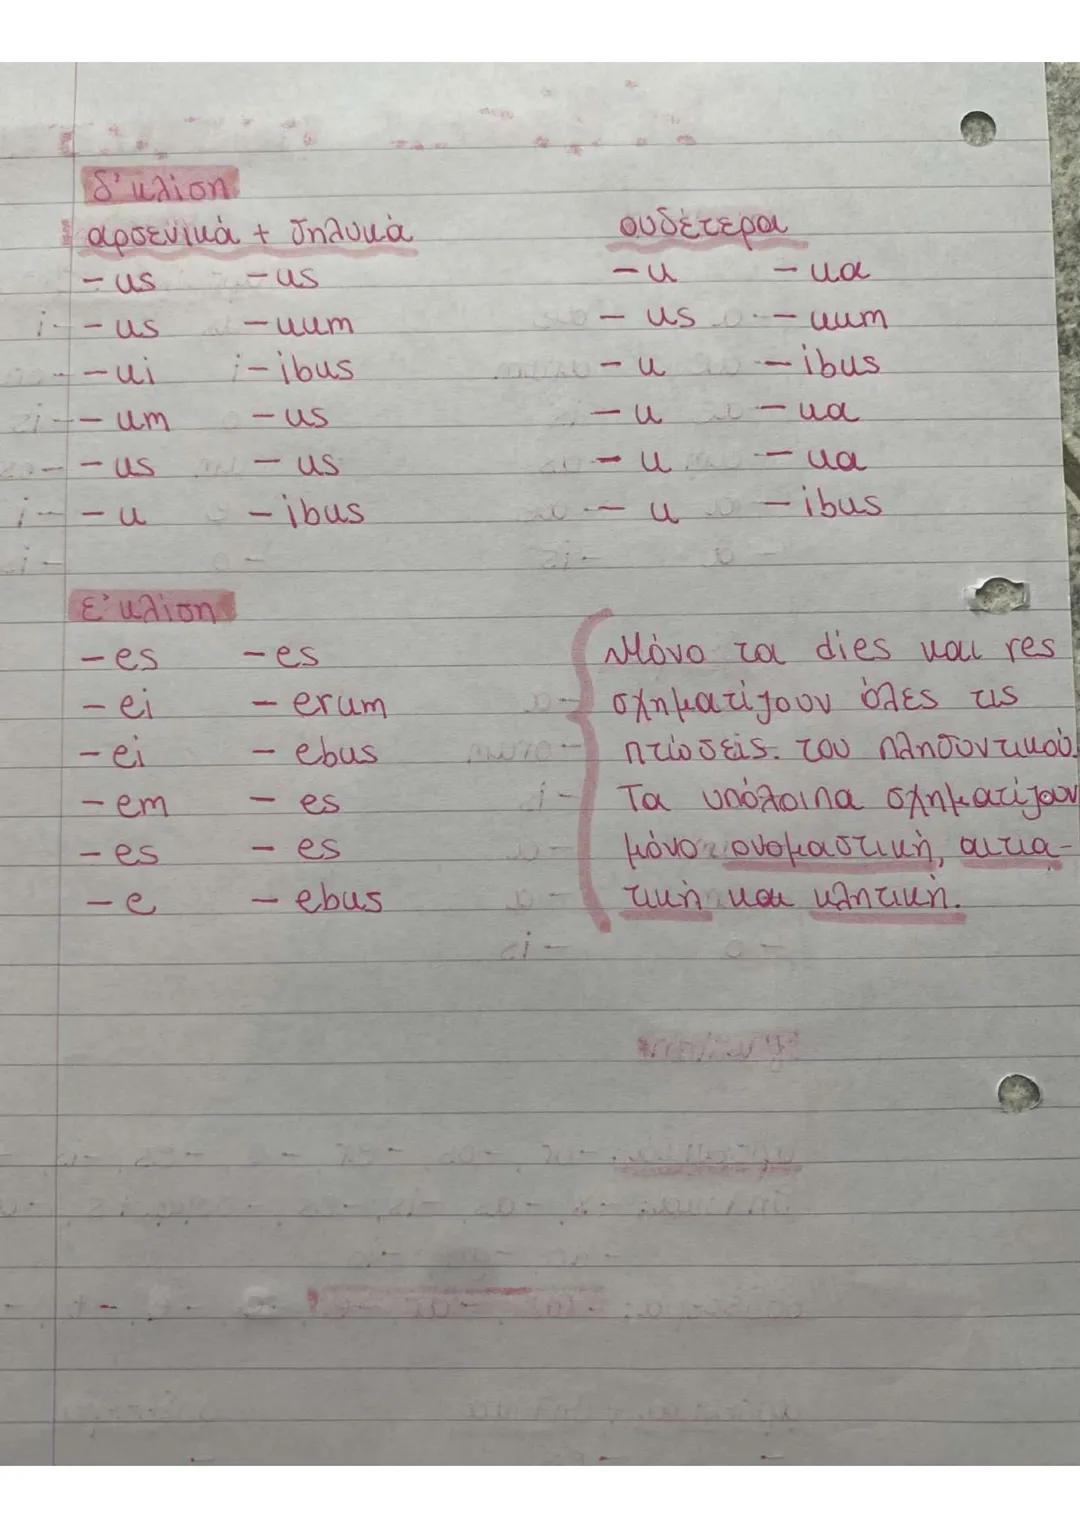 δ' κλίση
αρσενικά + θηλυκά ουδέτερα
-us -us -u -ua
-us -uum -us -uum
-ui -ibus -u -ibus
-um -us -u -ua
-us -us -u -ua
-u -ibus -u -ibus
ε' κλίση
-es -es Μόνο τα dies και res
-ei -erum σχηματίζουν όλες τις
-ei -ebus πτώσεις. του πληθυντικού.
-em -es Τα υπόλοιπα σχηματίζουν
-es -es μόνο ονομαστική, αιτια-
-e -ebus τική και κλητική.